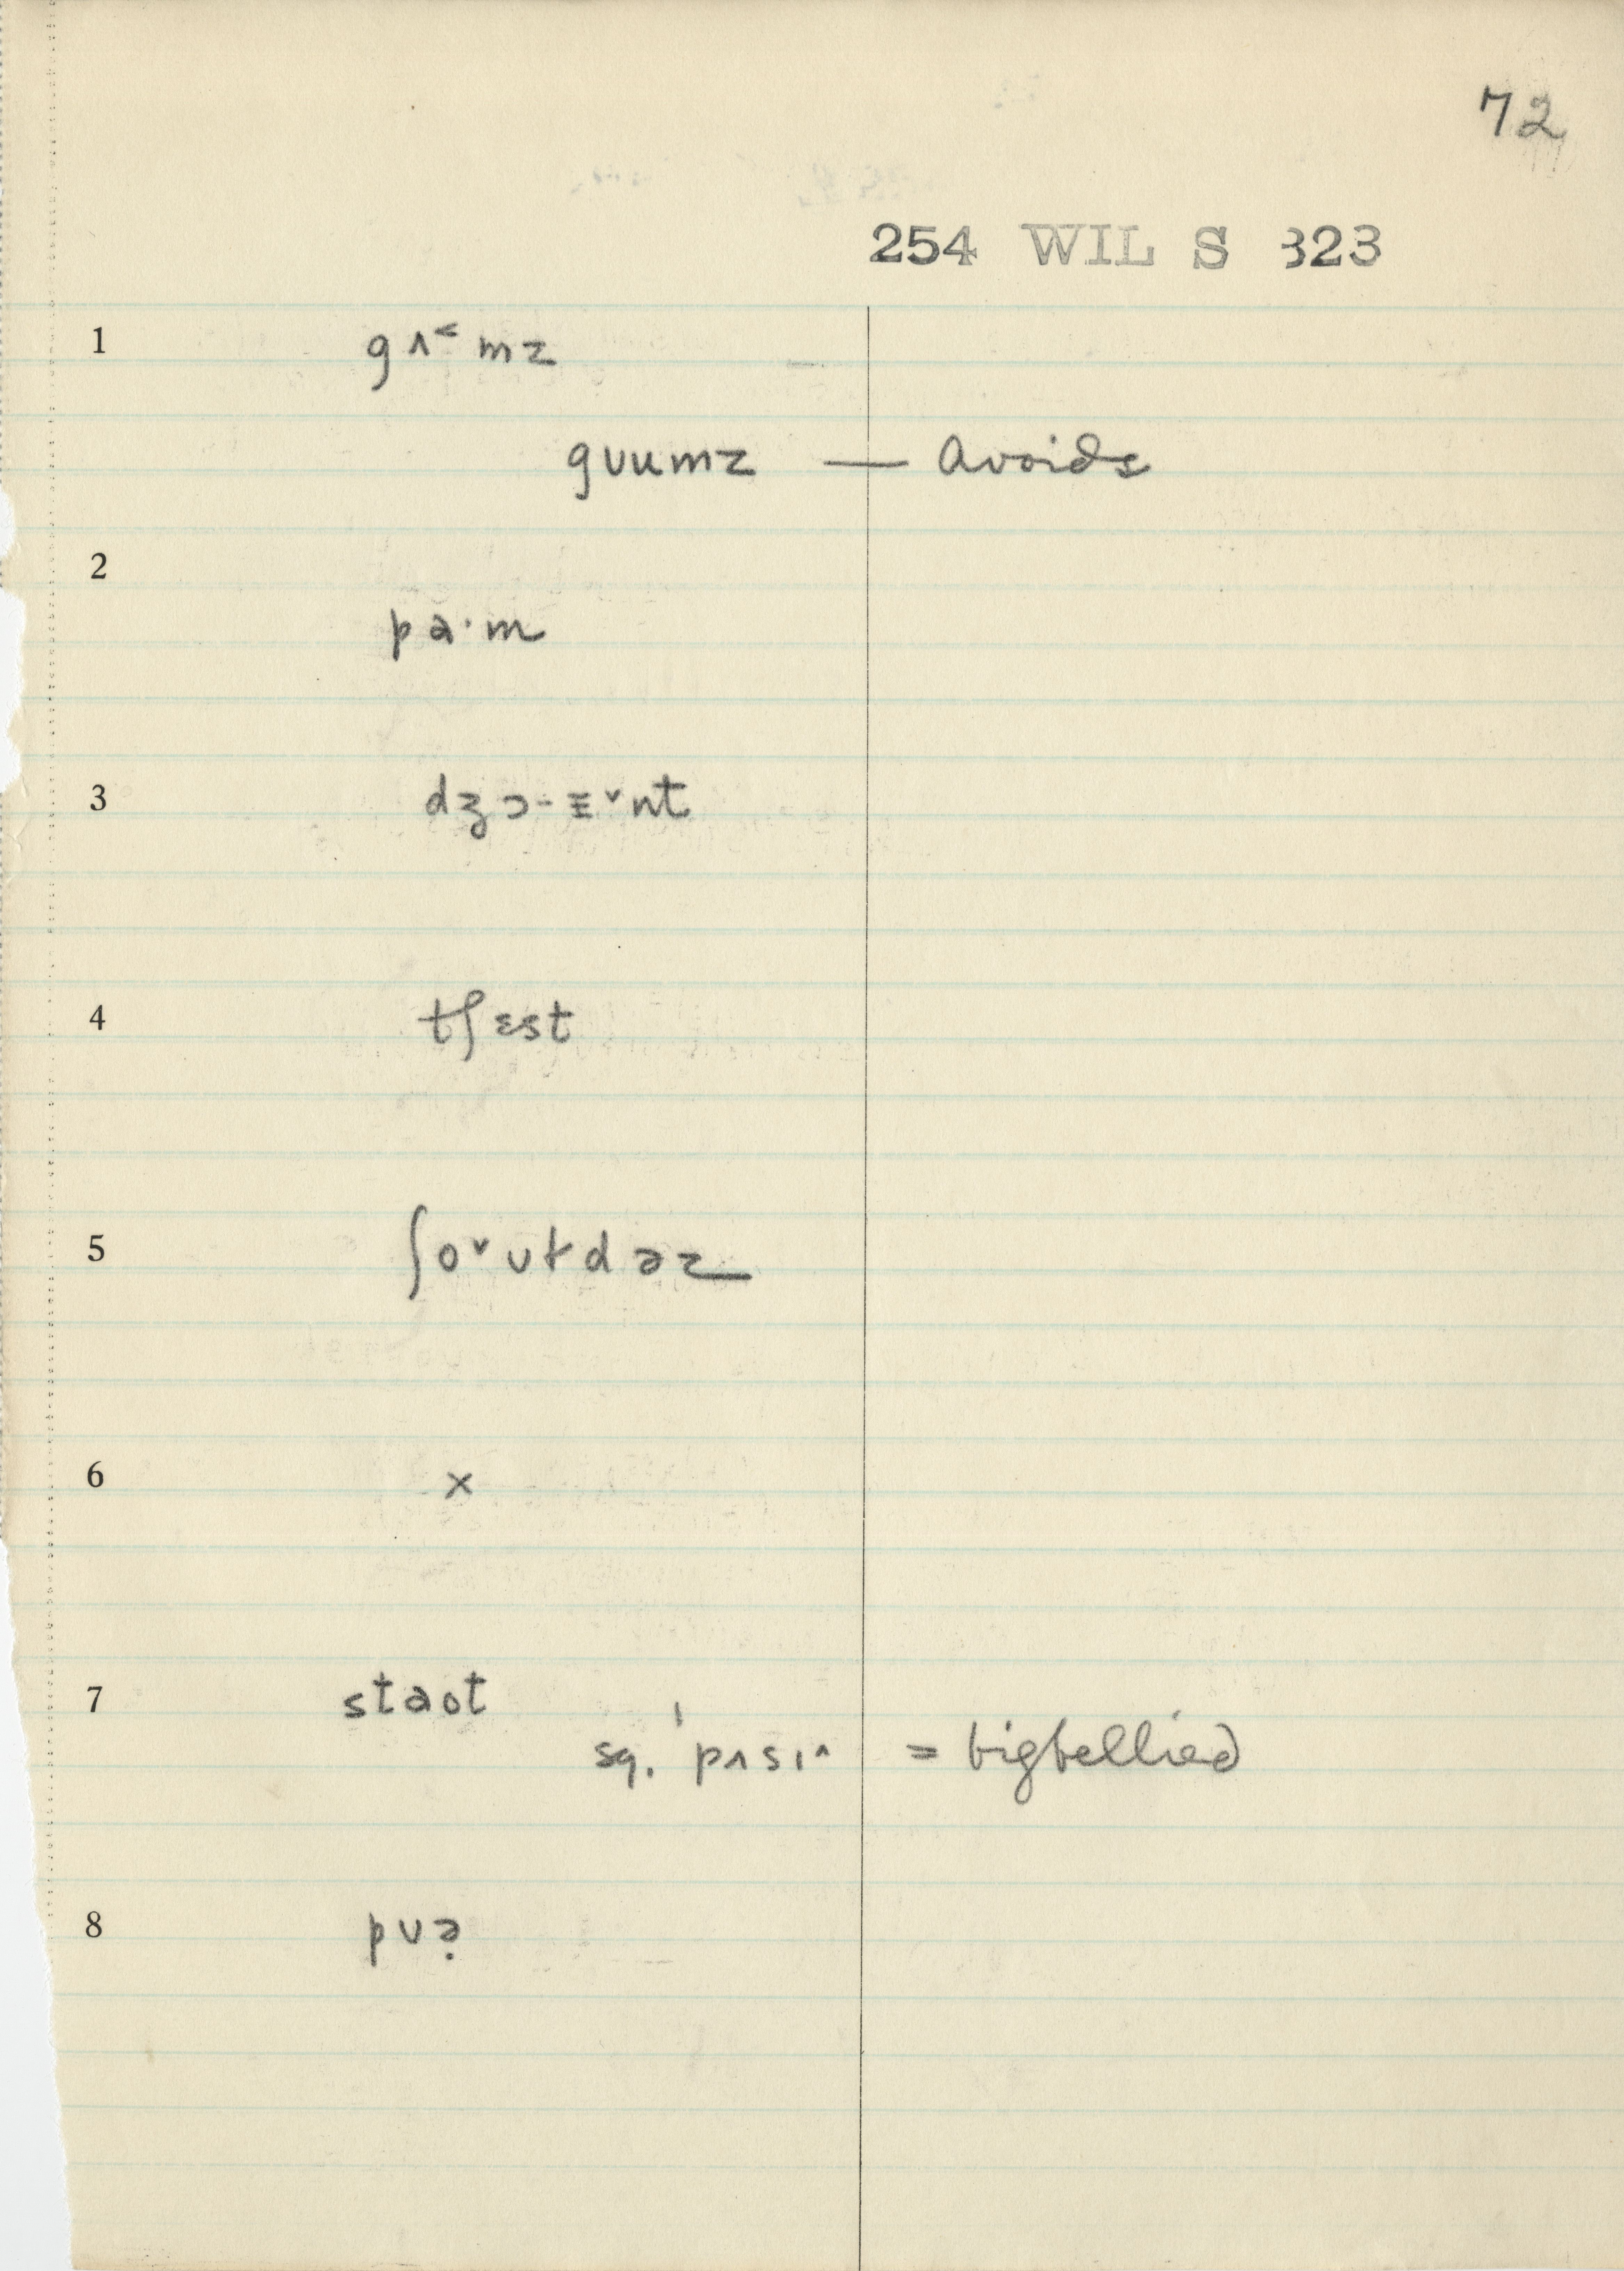 72
254 WIL S 323
1 gʌ˂mz
gᴜumz — Avoids
2
pa·m
3 dʒɔ-ɪ˅nt
4 tʃɛst
5 ʃo˅ʊɫdəz
6 x
7 staot
sq. ˈpʌsɪ^ = bigbellied
8 pʊə̣